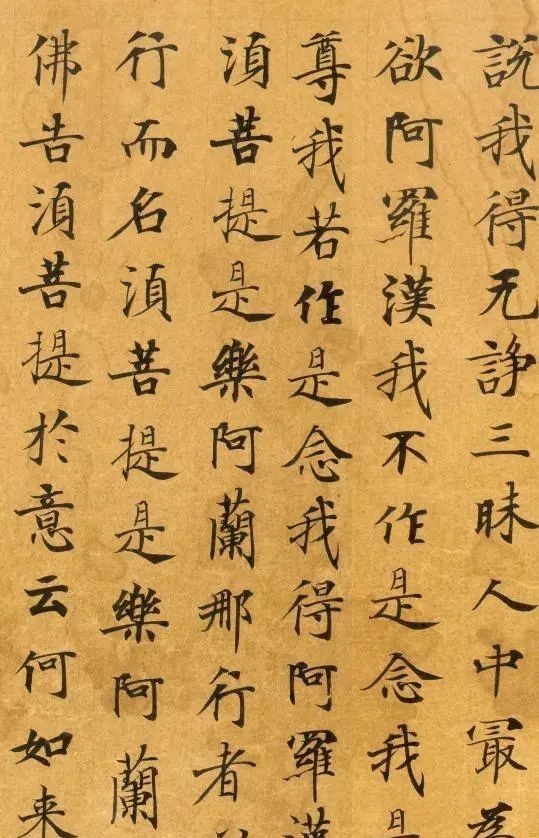 說我得无諍三昧人中冣
欲阿羅漢我不作是念我
尊我若作是念我得阿羅
湏菩提是樂阿蘭那行者
行而名湏菩提是樂阿蘭
佛告湏菩提於意云何如来